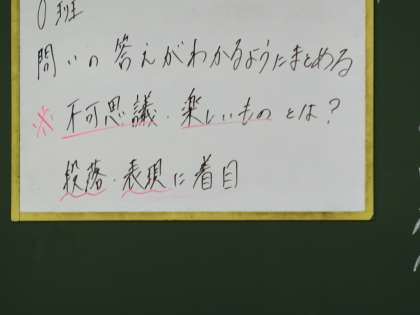 0班
問いの答えがわかるようにまとめる
※ 不可思議・楽しいものとは？
段落・表現に着目